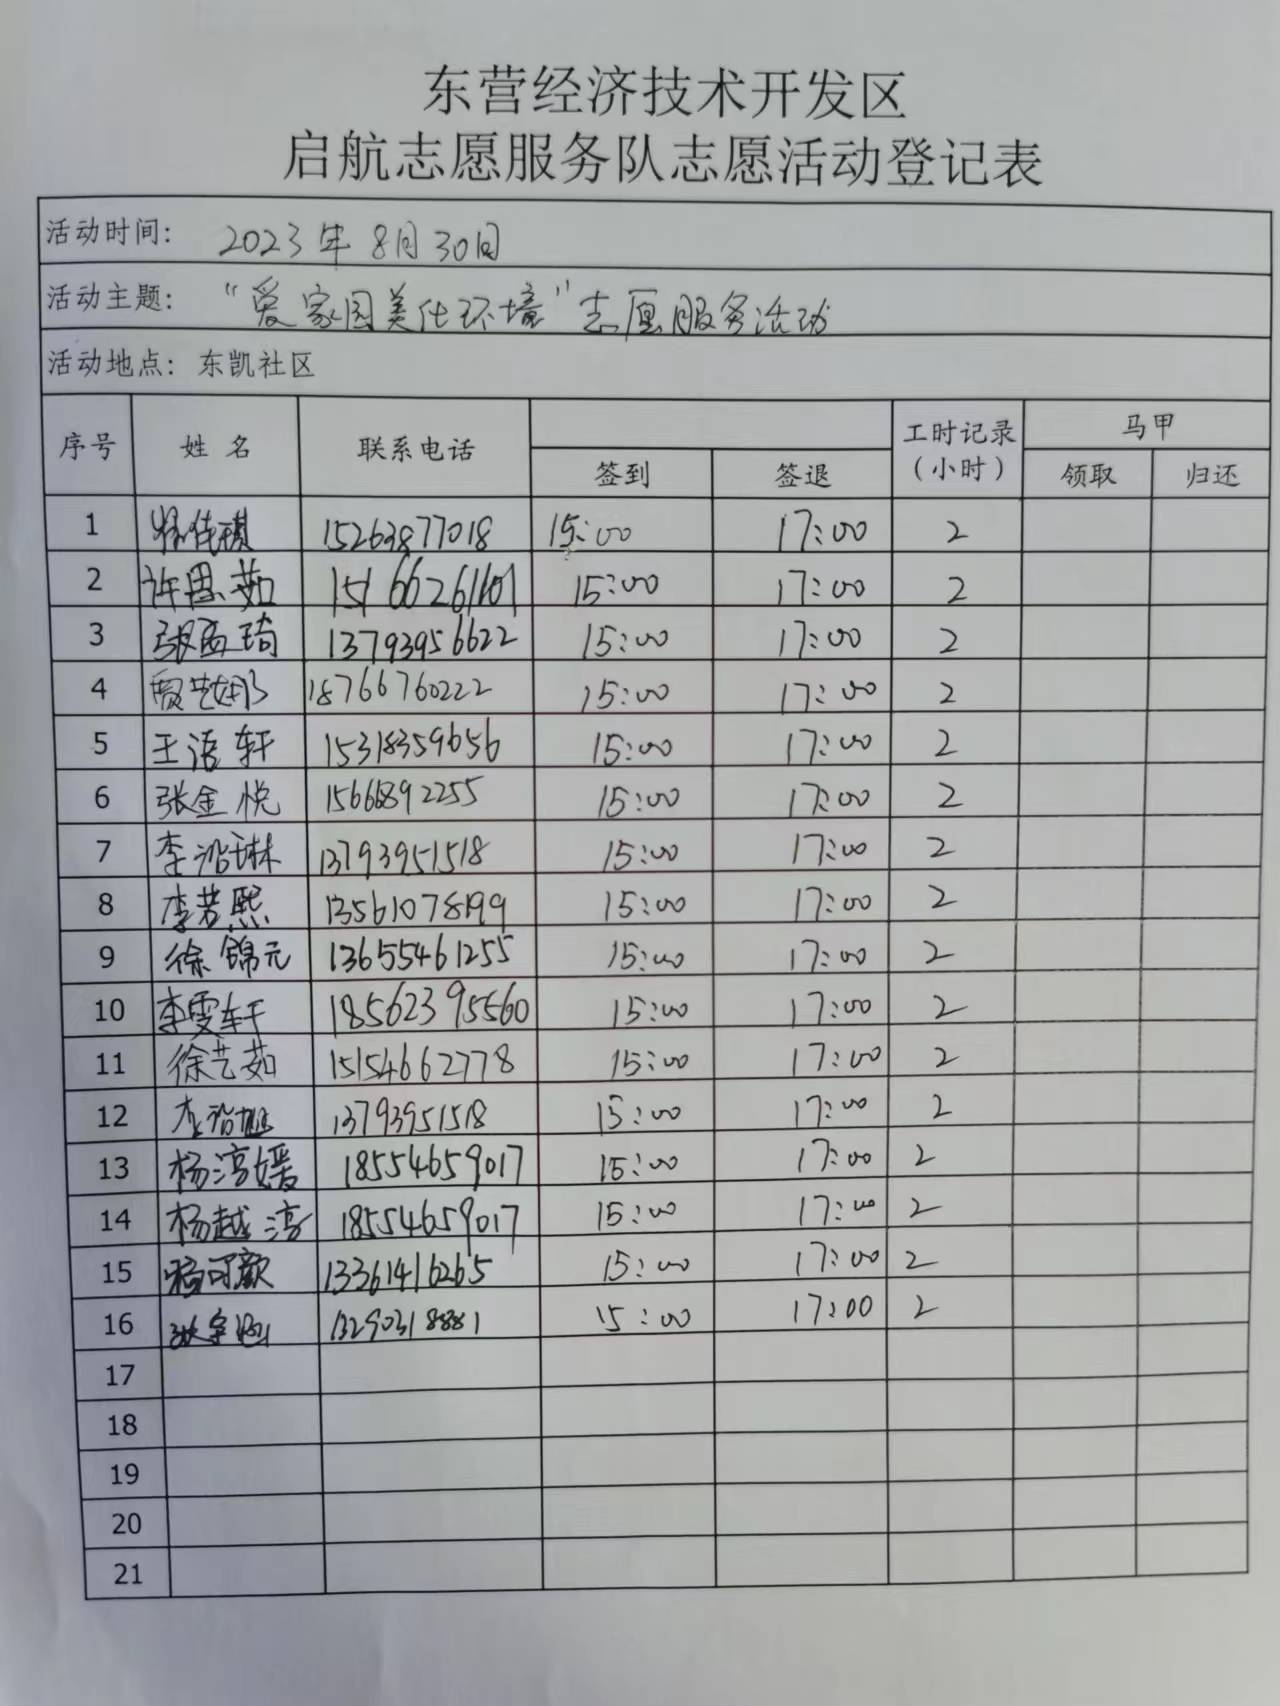 东营经济技术开发区
启航志愿服务队志愿活动登记表
活动时间: 2023年8月30日
活动主题: "爱家园美化环境"志愿服务活动
活动地点: 东凯社区
序号 姓名 联系电话 签到 签退 工时记录(小时) 马甲 领取 归还
1 15263877018 15:00 17:00 2
2 许思茹 15:00 17:00 2
3 张孟琦 13793956622 15:00 17:00 2
4 贾艺娜 18766760222 15:00 17:00 2
5 王语轩 15318359656 15:00 17:00 2
6 张金悦 15666892255 15:00 17:00 2
7 李沿琳 13793951518 15:00 17:00 2
8 李若熙 13561078199 15:00 17:00 2
9 徐锦元 13655461255 15:00 17:00 2
10 李雯轩 18562395560 15:00 17:00 2
11 徐艺茹 15154662778 15:00 17:00 2
12 13793951518 15:00 17:00 2
13 杨淳媛 18554659017 15:00 17:00 2
14 杨越淳 18554659017 15:00 17:00 2
15 杨可歆 13361416265 15:00 17:00 2
16 13290318881 15:00 17:00 2
17
18
19
20
21